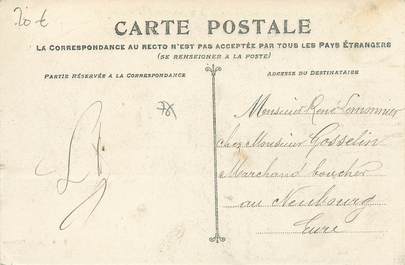 20 €
CARTE POSTALE
LA CORRESPONDANCE AU RECTO N'EST PAS ACCEPTÉE PAR TOUS LES PAYS ÉTRANGERS
(SE RENSEIGNER A LA POSTE)
PARTIE RÉSERVÉE A LA CORRESPONDANCE
ADRESSE DU DESTINATAIRE
Monsieur René Lemonnier
chez Monsieur Gosselin
Marchand boucher
au Neubourg
Eure